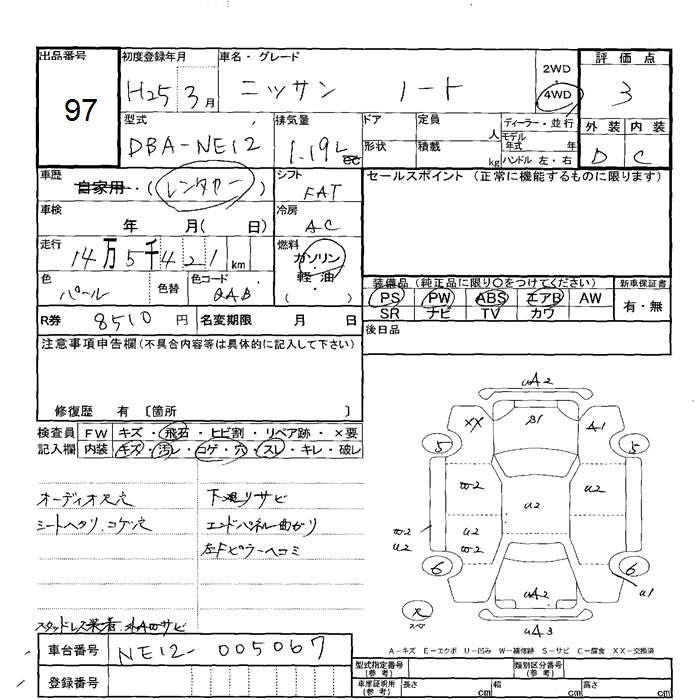 出品番号 97
初度登録年月 H25 3月
車名・グレード ニッサン ノート
2WD 4WD
評価点 3
外装 内装
D C
型式 DBA-NE12
排気量 1.19L cc
ドア 形状
定員 人
積載 kg
ディーラー・並行
モデル年式 年
ハンドル 左・右
車歴 自家用・(レンタカー)
シフト FAT
セールスポイント (正常に機能するものに限ります)
車検 年 月( 日)
冷房 AC
走行 14万5千421 km
燃料 ガソリン・軽油・( )
色 パール 色替
色コード QAB
装備品 (純正品に限り○をつけてください)
PS PW ABS エアB AW
SR ナビ TV カワ
新車保証書 有・無
R券 8510 円 名変期限 月 日
後日品
注意事項申告欄(不具合内容等は具体的に記入して下さい)
修復歴 有 〔箇所 〕
検査員記入欄
FW キズ・飛石・ヒビ割・リペア跡・×要
内装 キズ・汚レ・コゲ・穴・スレ・キレ・破レ
オーディオ大穴 下廻リサビ
シートヘタリ、コゲ穴 エンドパネル曲がり
左Fピラーヘコミ
スタッドレス装着
uA2
XX B1 A1
5 5
w2 u2
u2
w2 u2 w2
u2
6 6
uA2 u1
スペ
uA3
A-キズ E-エクボ U-凹み W-補修跡 S-サビ C-腐食 XX-交換済
車台番号 NE12-005067
登録番号
型式指定番号(参考) 類別区分番号(参考)
車庫証明用(参考) 長さ cm 幅 cm 高さ cm